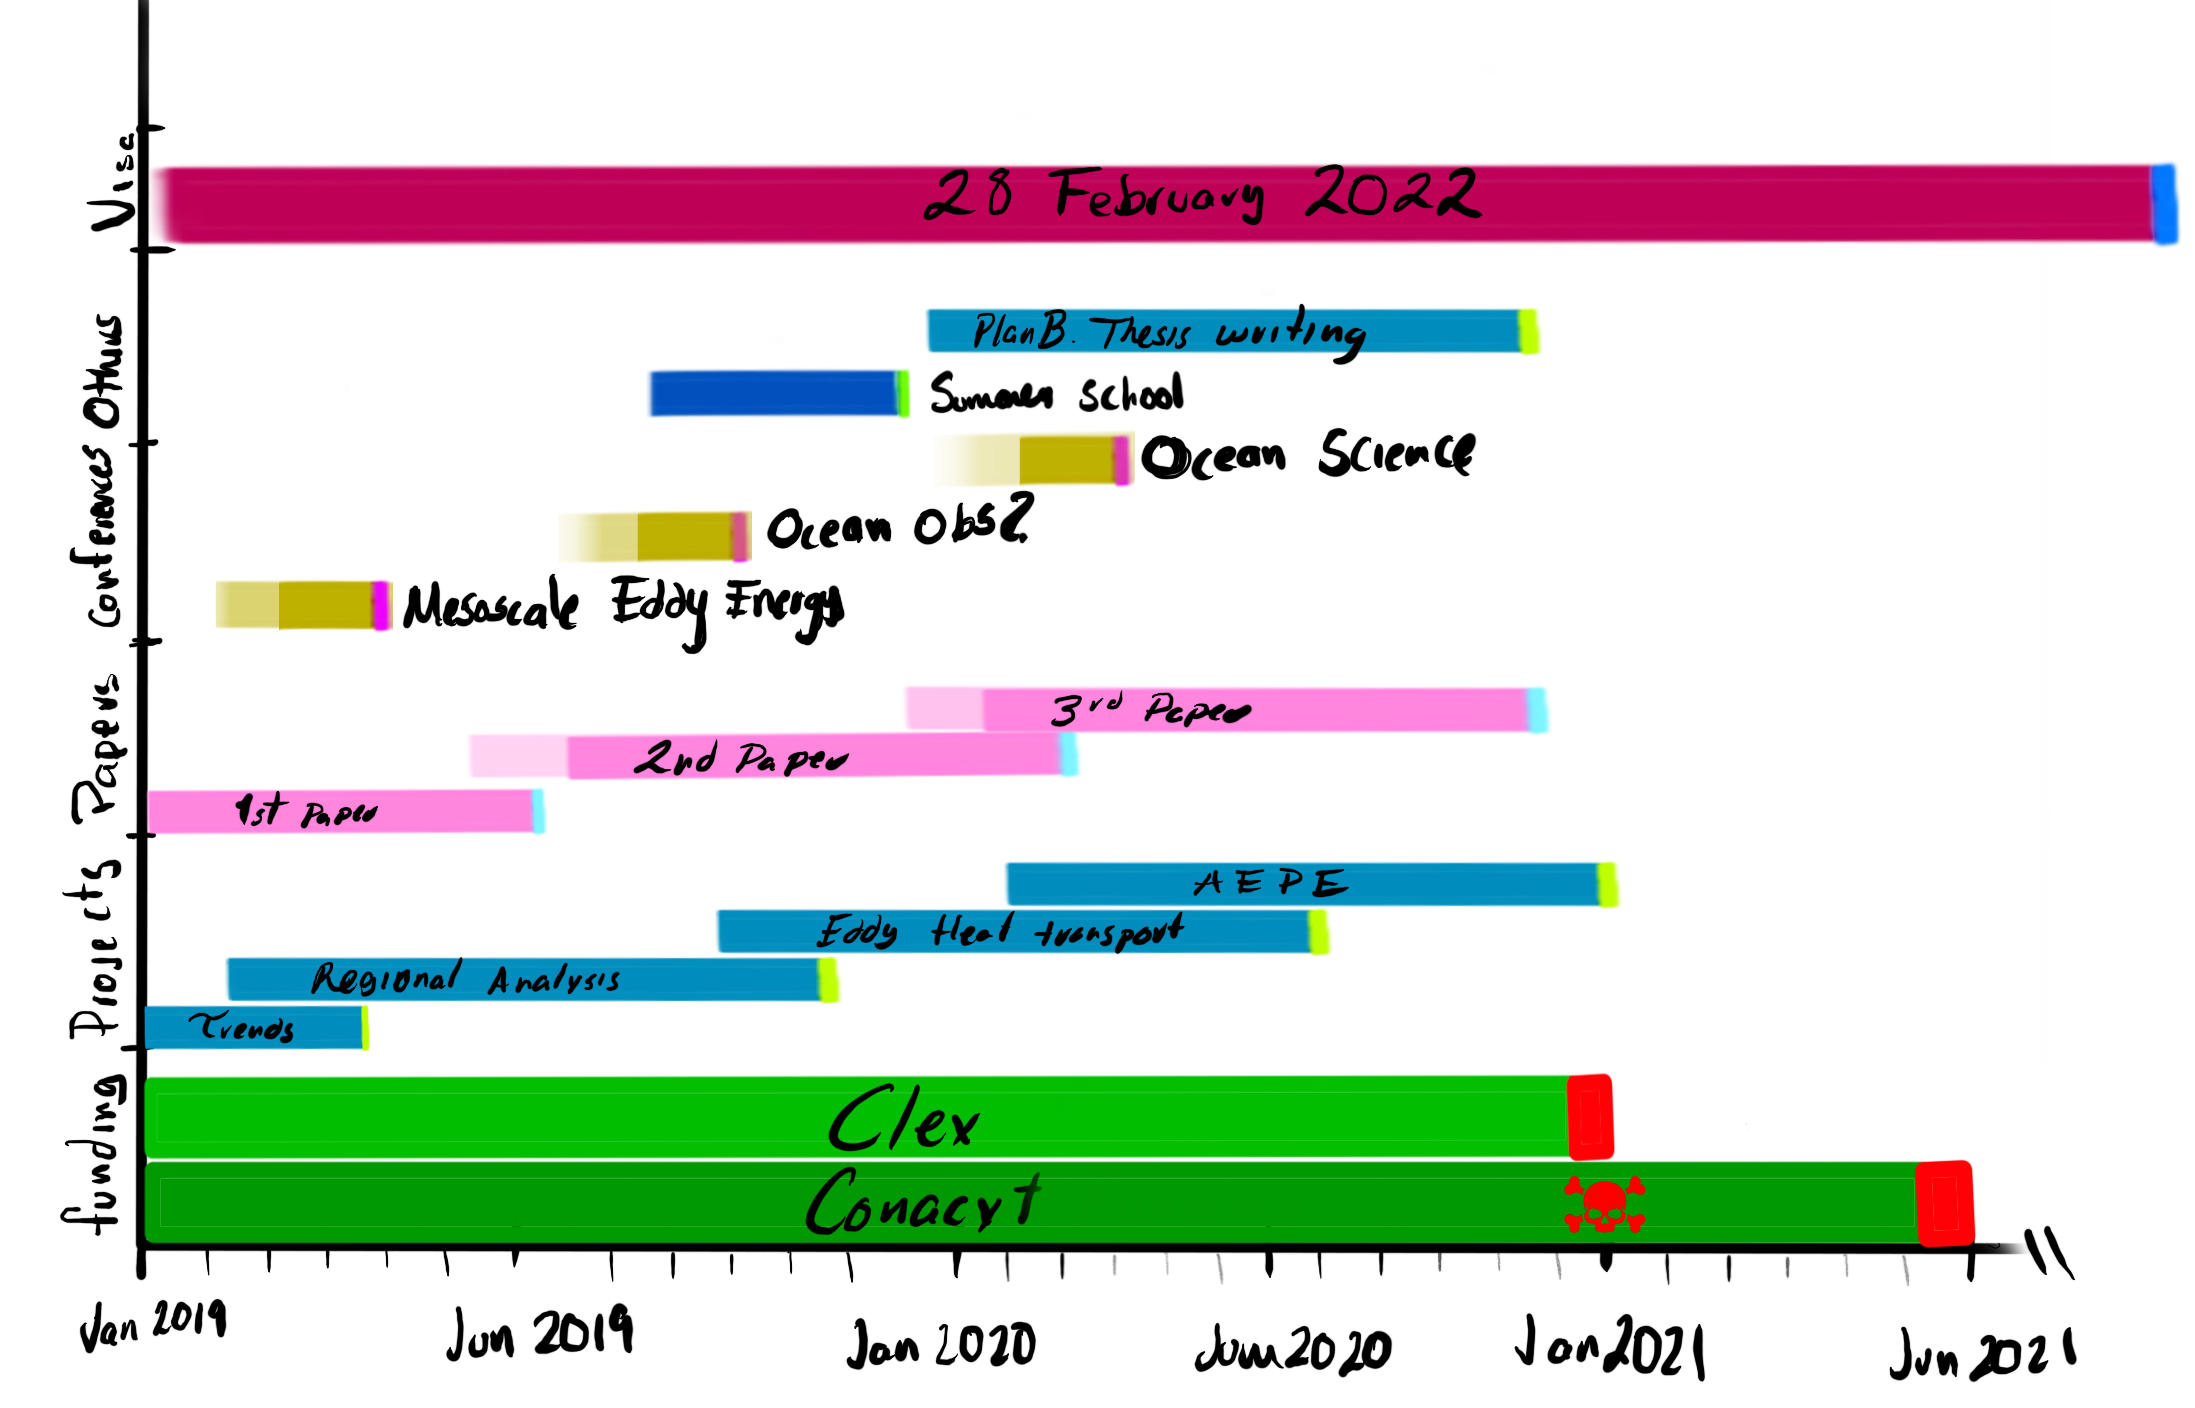 Visa
28 February 2022
Others
Plan B. Thesis writing
Summer School
Conferences
Ocean Science
Ocean Obs?
Mesoscale Eddy Energy
Papers
3rd Paper
2nd Paper
1st Paper
Projects
AEPE
Eddy Heat transport
Regional Analysis
Trends
funding
Clex
Conacyt
Jan 2019
Jun 2019
Jan 2020
Jun 2020
Jan 2021
Jun 2021